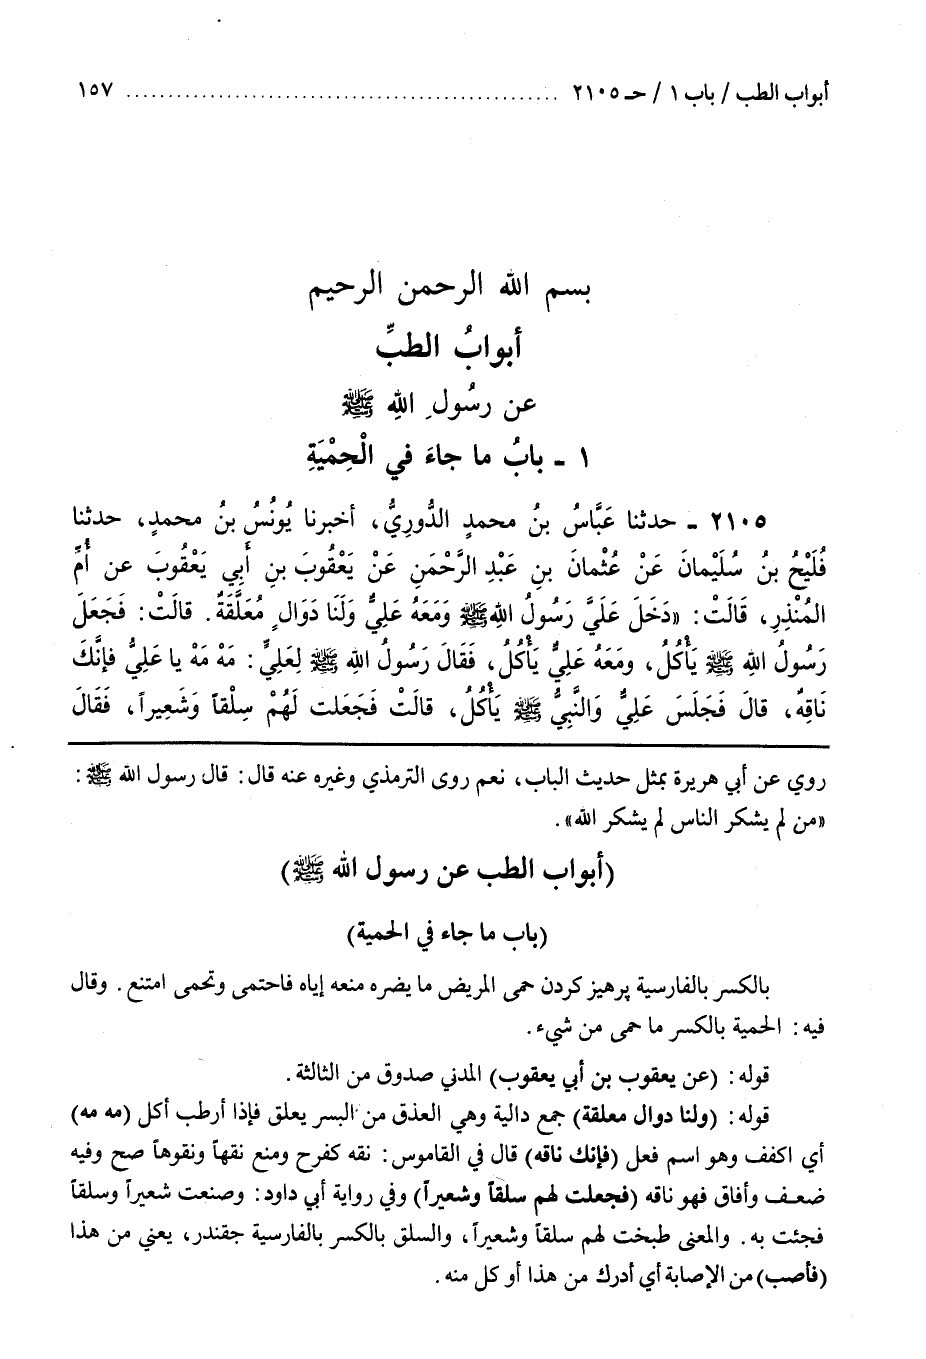 أبواب الطب / باب ١ / حـ ٢١٠٥ .................................................... ١٥٧
بسم الله الرحمن الرحيم
أبوابُ الطبِّ
عن رسُولِ اللهِ ﷺ
١ ـ بابُ ما جاءَ في الْحِمْيَةِ
٢١٠٥ ـ حدثنا عَبَّاسُ بنُ محمدٍ الدُّورِيُّ، أخبرنا يُونُسُ بنُ محمدٍ، حدثنا
فُلَيْحُ بنُ سُلَيْمانَ عَنْ عُثْمانَ بنِ عَبْدِ الرَّحْمَنِ عَنْ يَعْقُوبَ بنِ أَبِي يَعْقُوبَ عن أُمِّ
المُنْذِرِ، قَالَتْ: «دَخَلَ عَلَيَّ رَسُولُ اللهِ ﷺ وَمَعَهُ عَلِيٌّ وَلَنَا دَوَالٍ مُعَلَّقَةٌ. قالَتْ: فَجَعَلَ
رَسُولُ اللهِ ﷺ يَأْكُلُ، ومَعَهُ عَلِيٌّ يَأْكُلُ، فَقَالَ رَسُولُ اللهِ ﷺ لِعَلِيٍّ: مَهْ مَهْ يا عَلِيُّ فإنَّكَ
نَاقِهٌ، قالَ فَجَلَسَ عَلِيٌّ وَالنَّبِيُّ ﷺ يَأْكُلُ، قالَتْ فَجَعَلت لَهُمْ سِلْقاً وَشَعِيراً، فَقَالَ
روي عن أبي هريرة بمثل حديث الباب، نعم روى الترمذي وغيره عنه قال: قال رسول الله ﷺ:
«من لم يشكر الناس لم يشكر الله».
(أبواب الطب عن رسول الله ﷺ)
(باب ما جاء في الحمية)
بالكسر بالفارسية پرهيز كردن حمى المريض ما يضره منعه إياه فاحتمى وتحمى امتنع. وقال
فيه: الحمية بالكسر ما حمى من شيء.
قوله: (عن يعقوب بن أبي يعقوب) المدني صدوق من الثالثة.
قوله: (ولنا دوال معلقة) جمع دالية وهي العذق من البسر يعلق فإذا أرطب أكل (مه مه)
أي اكفف وهو اسم فعل (فإنك ناقه) قال في القاموس: نقه كفرح ومنع نقهاً ونقوهاً صح وفيه
ضعف وأفاق فهو ناقه (فجعلت لهم سلقاً وشعيراً) وفي رواية أبي داود: وصنعت شعيراً وسلقاً
فجئت به. والمعنى طبخت لهم سلقاً وشعيراً، والسلق بالكسر بالفارسية جقندر، يعني من هذا
(فأصب) من الإصابة أي أدرك من هذا أو كل منه.